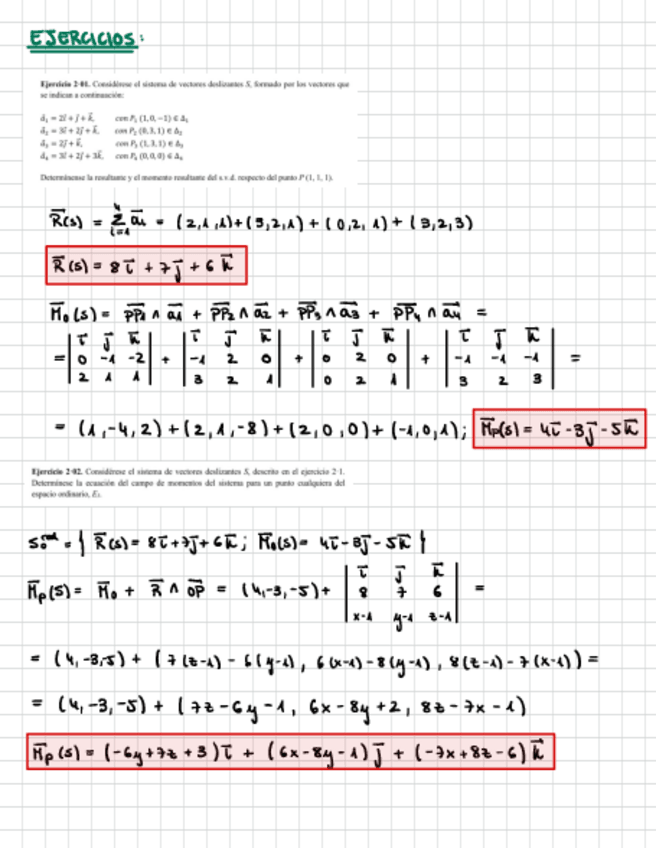 EJERCICIOS:
Ejercicio 2-01. Considérese el sistema de vectores deslizantes S, formado por los vectores que
se indican a continuación:
a⃗₁ = 2i⃗ + j⃗ + k⃗, con P₁ (1,0,−1) ∈ Δ₁
a⃗₂ = 3i⃗ + 2j⃗ + k⃗, con P₂ (0,3,1) ∈ Δ₂
a⃗₃ = 2j⃗ + k⃗, con P₃ (1,3,1) ∈ Δ₃
a⃗₄ = 3i⃗ + 2j⃗ + 3k⃗, con P₄ (0,0,0) ∈ Δ₄
Determínense la resultante y el momento resultante del s.v.d. respecto del punto P (1, 1, 1).
R⃗(s) = Σ⁴ᵢ₌₁ a⃗ᵢ = (2,1,1)+(3,2,1) + (0,2,1) + (3,2,3)
R⃗(s) = 8i⃗ + 7j⃗ + 6k⃗
M⃗₀(s) = PP₁ ∧ a₁ + PP₂ ∧ a₂ + PP₃ ∧ a₃ + PP₄ ∧ a₄ =
= | i⃗ j⃗ k⃗ | + | i⃗ j⃗ k⃗ | + | i⃗ j⃗ k⃗ | + | i⃗ j⃗ k⃗ | =
0 −1 −2 −1 2 0 0 2 0 −1 −1 −1
2 1 1 3 2 1 0 2 1 3 2 3
= (1,−4,2) + (2,1,−8) + (2,0,0) + (−1,0,1); M⃗p(s) = 4i⃗ − 3j⃗ − 5k⃗
Ejercicio 2-02. Considérese el sistema de vectores deslizantes S, descrito en el ejercicio 2-1.
Determínese la ecuación del campo de momentos del sistema para un punto cualquiera del
espacio ordinario, E₃.
= { R⃗(s) = 8i⃗+7j⃗+6k⃗; M⃗₀(s) = 4i⃗−3j⃗−5k⃗ }
M⃗p(s) = M⃗₀ + R⃗ ∧ OP = (4,−3,−5) + | i⃗ j⃗ k⃗ | =
8 7 6
x−1 y−1 z−1
= (4,−3,−5) + (7(z−1) − 6(y−1), 6(x−1)−8(y−1), 8(z−1)−7(x−1)) =
= (4,−3,−5) + (7z−6y−1, 6x−8y+2, 8z−7x−1)
M⃗p(s) = (−6y+7z+3)i⃗ + (6x−8y−1)j⃗ + (−7x+8z−6)k⃗